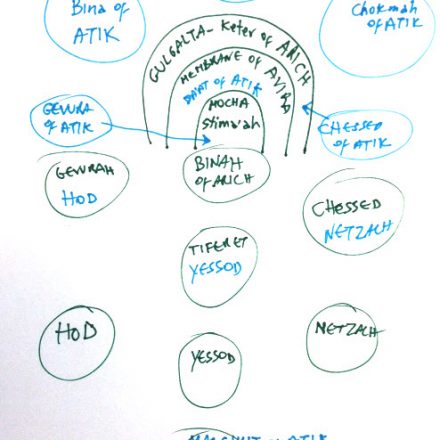 Bina of
ATIK
Chokmah
of ATIK
GULGALTA - Keter of ARICH
MEMBRANE OF AVIRA
DAAT OF ATIK
MOCHA
Stima'ah
GEVURA
of ATIK
CHESSED
of ATIK
BINAH
of ARICH
GEVURAH
HOD
CHESSED
NETZACH
TIFERET
YESSOD
HOD
NETZACH
YESSOD